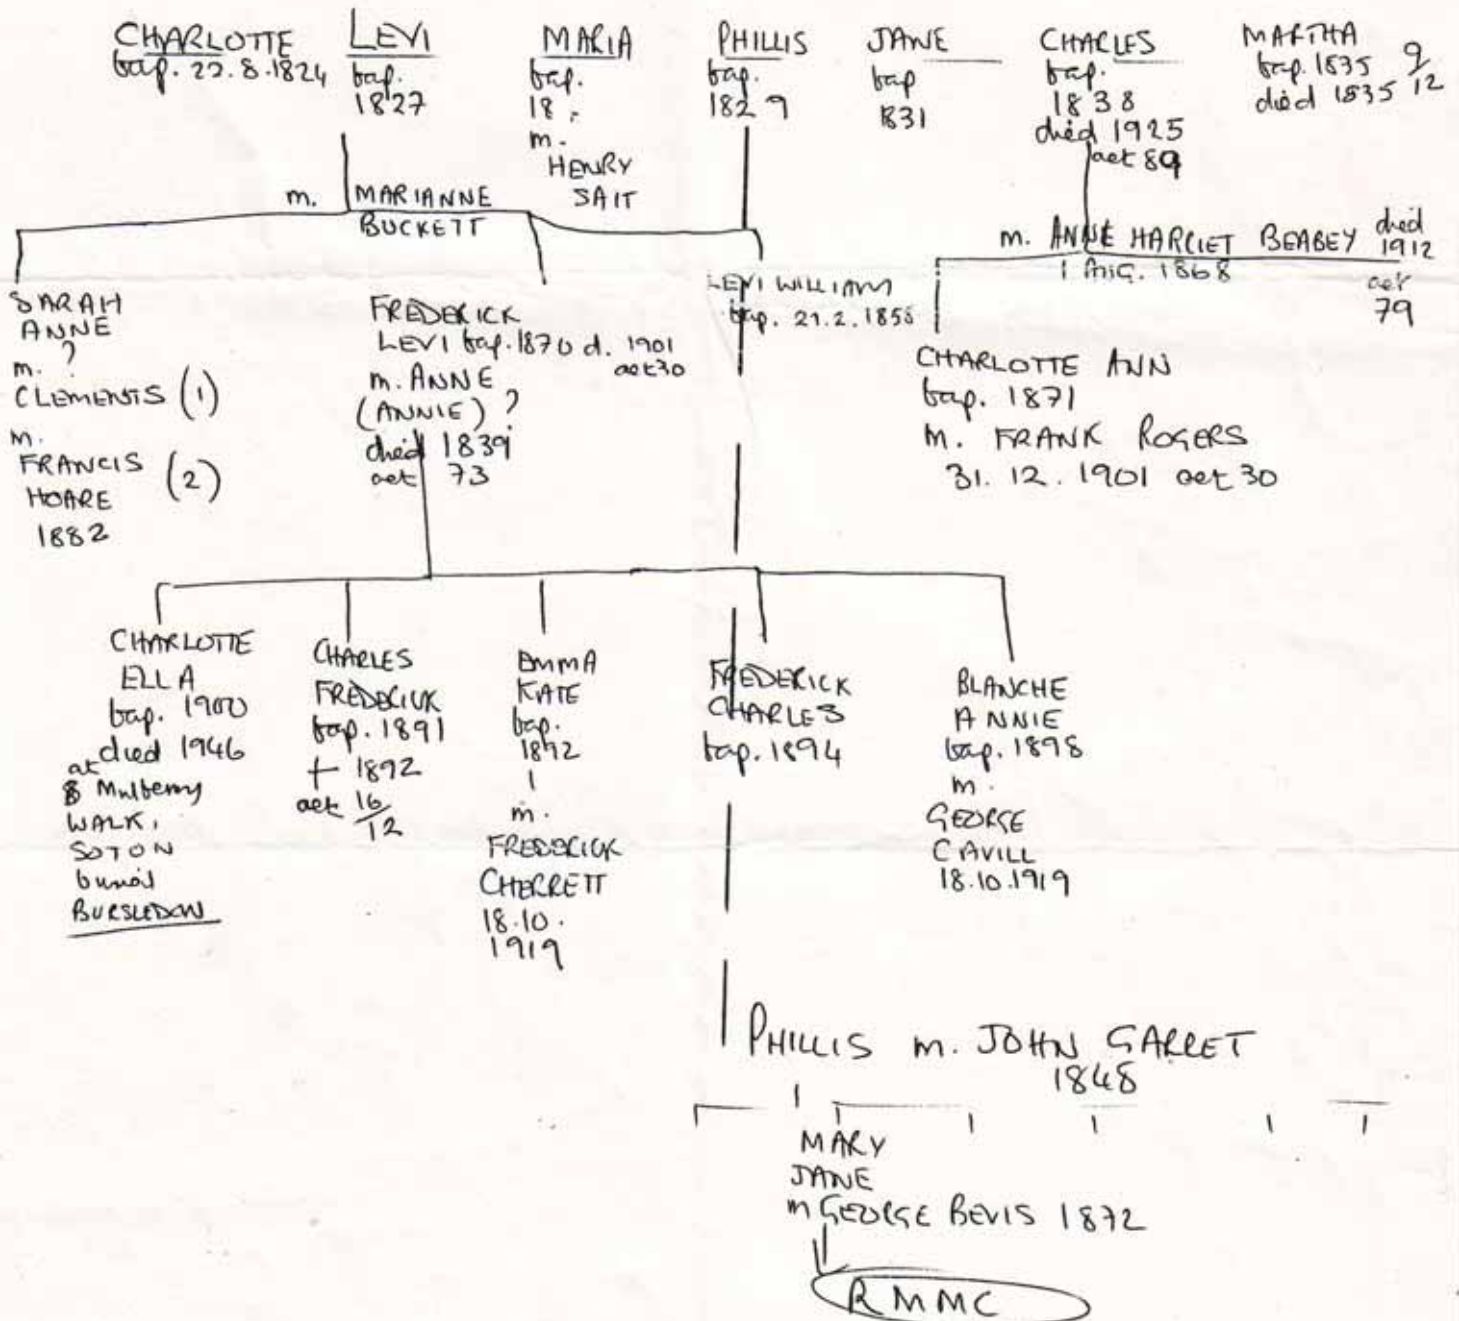 CHARLOTTE
bap. 22.8.1824
LEVI
bap.
1827
MARIA
bap.
18
m.
HENRY
SAIT
PHILLIS
bap.
1829
JANE
bap
1831
CHARLES
bap.
1838
died 1925
aet 89
MARTHA
bap. 1835
died 1835 9/12
m. MARIANNE
BUCKETT
m. ANNE HARRIET BEABEY died
1912
1 AUG. 1868
aet
79
SARAH
ANNE
m. ?
CLEMENTS (1)
m.
FRANCIS (2)
HOARE
1882
FREDERICK
LEVI bap. 1870 d. 1901
aet 30
m. ANNE
(ANNIE) ?
died 1839
aet 73
LEVI WILLIAM
bap. 21.2.1858
CHARLOTTE ANN
bap. 1871
m. FRANK ROGERS
31. 12. 1901 aet 30
CHARLOTTE
ELLA
bap. 1900
died 1946
at
8 Mulberry
WALK,
SOTON
burial
BURSLEDON
CHARLES
FREDERICK
bap. 1891
+ 1892
aet 16/12
EMMA
KATE
bap.
1892
m.
FREDERICK
CHERRETT
18.10.
1919
FREDERICK
CHARLES
bap. 1894
BLANCHE
ANNIE
bap. 1898
m.
GEORGE
CAVILL
18.10.1919
PHILLIS m. JOHN GARRET
1848
MARY
JANE
m GEORGE BEVIS 1872
RMMC